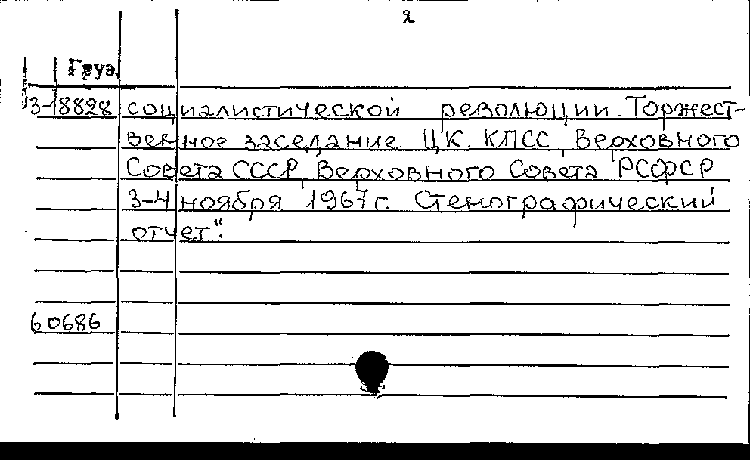 2
Груз.
3-18828 социалистической революции. Торжест-
венное заседание ЦК КПСС, Верховного
Совета СССР, Верховного Совета РСФСР
3-4 ноября 1967 г. Стенографический
отчет".
60686